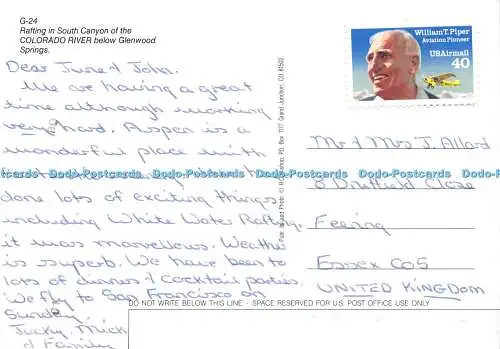 G-24
Rafting in South Canyon of the
COLORADO RIVER below Glenwood
Springs.
Dear June & John.
We are having a great
time although working
very hard. Aspen is a
wonderful place with
done lots of exciting things
including White Water Rafting,
it was marvellous. Weather
is superb. We have been to
lots of dinners & cocktail parties.
We fly to San Francisco on
Sunday
Jacky, Mick
& Family
William T. Piper
Aviation Pioneer
USAirmail
40
Mr & Mrs J. Allard
8 Driffield Close
Feering
Essex CO5
UNITED KINGDOM
DO NOT WRITE BELOW THIS LINE - SPACE RESERVED FOR U.S. POST OFFICE USE ONLY
Dodo-Postcards Dodo-Postcards Dodo-Postcards Dodo-Postcards Dodo-Postcards